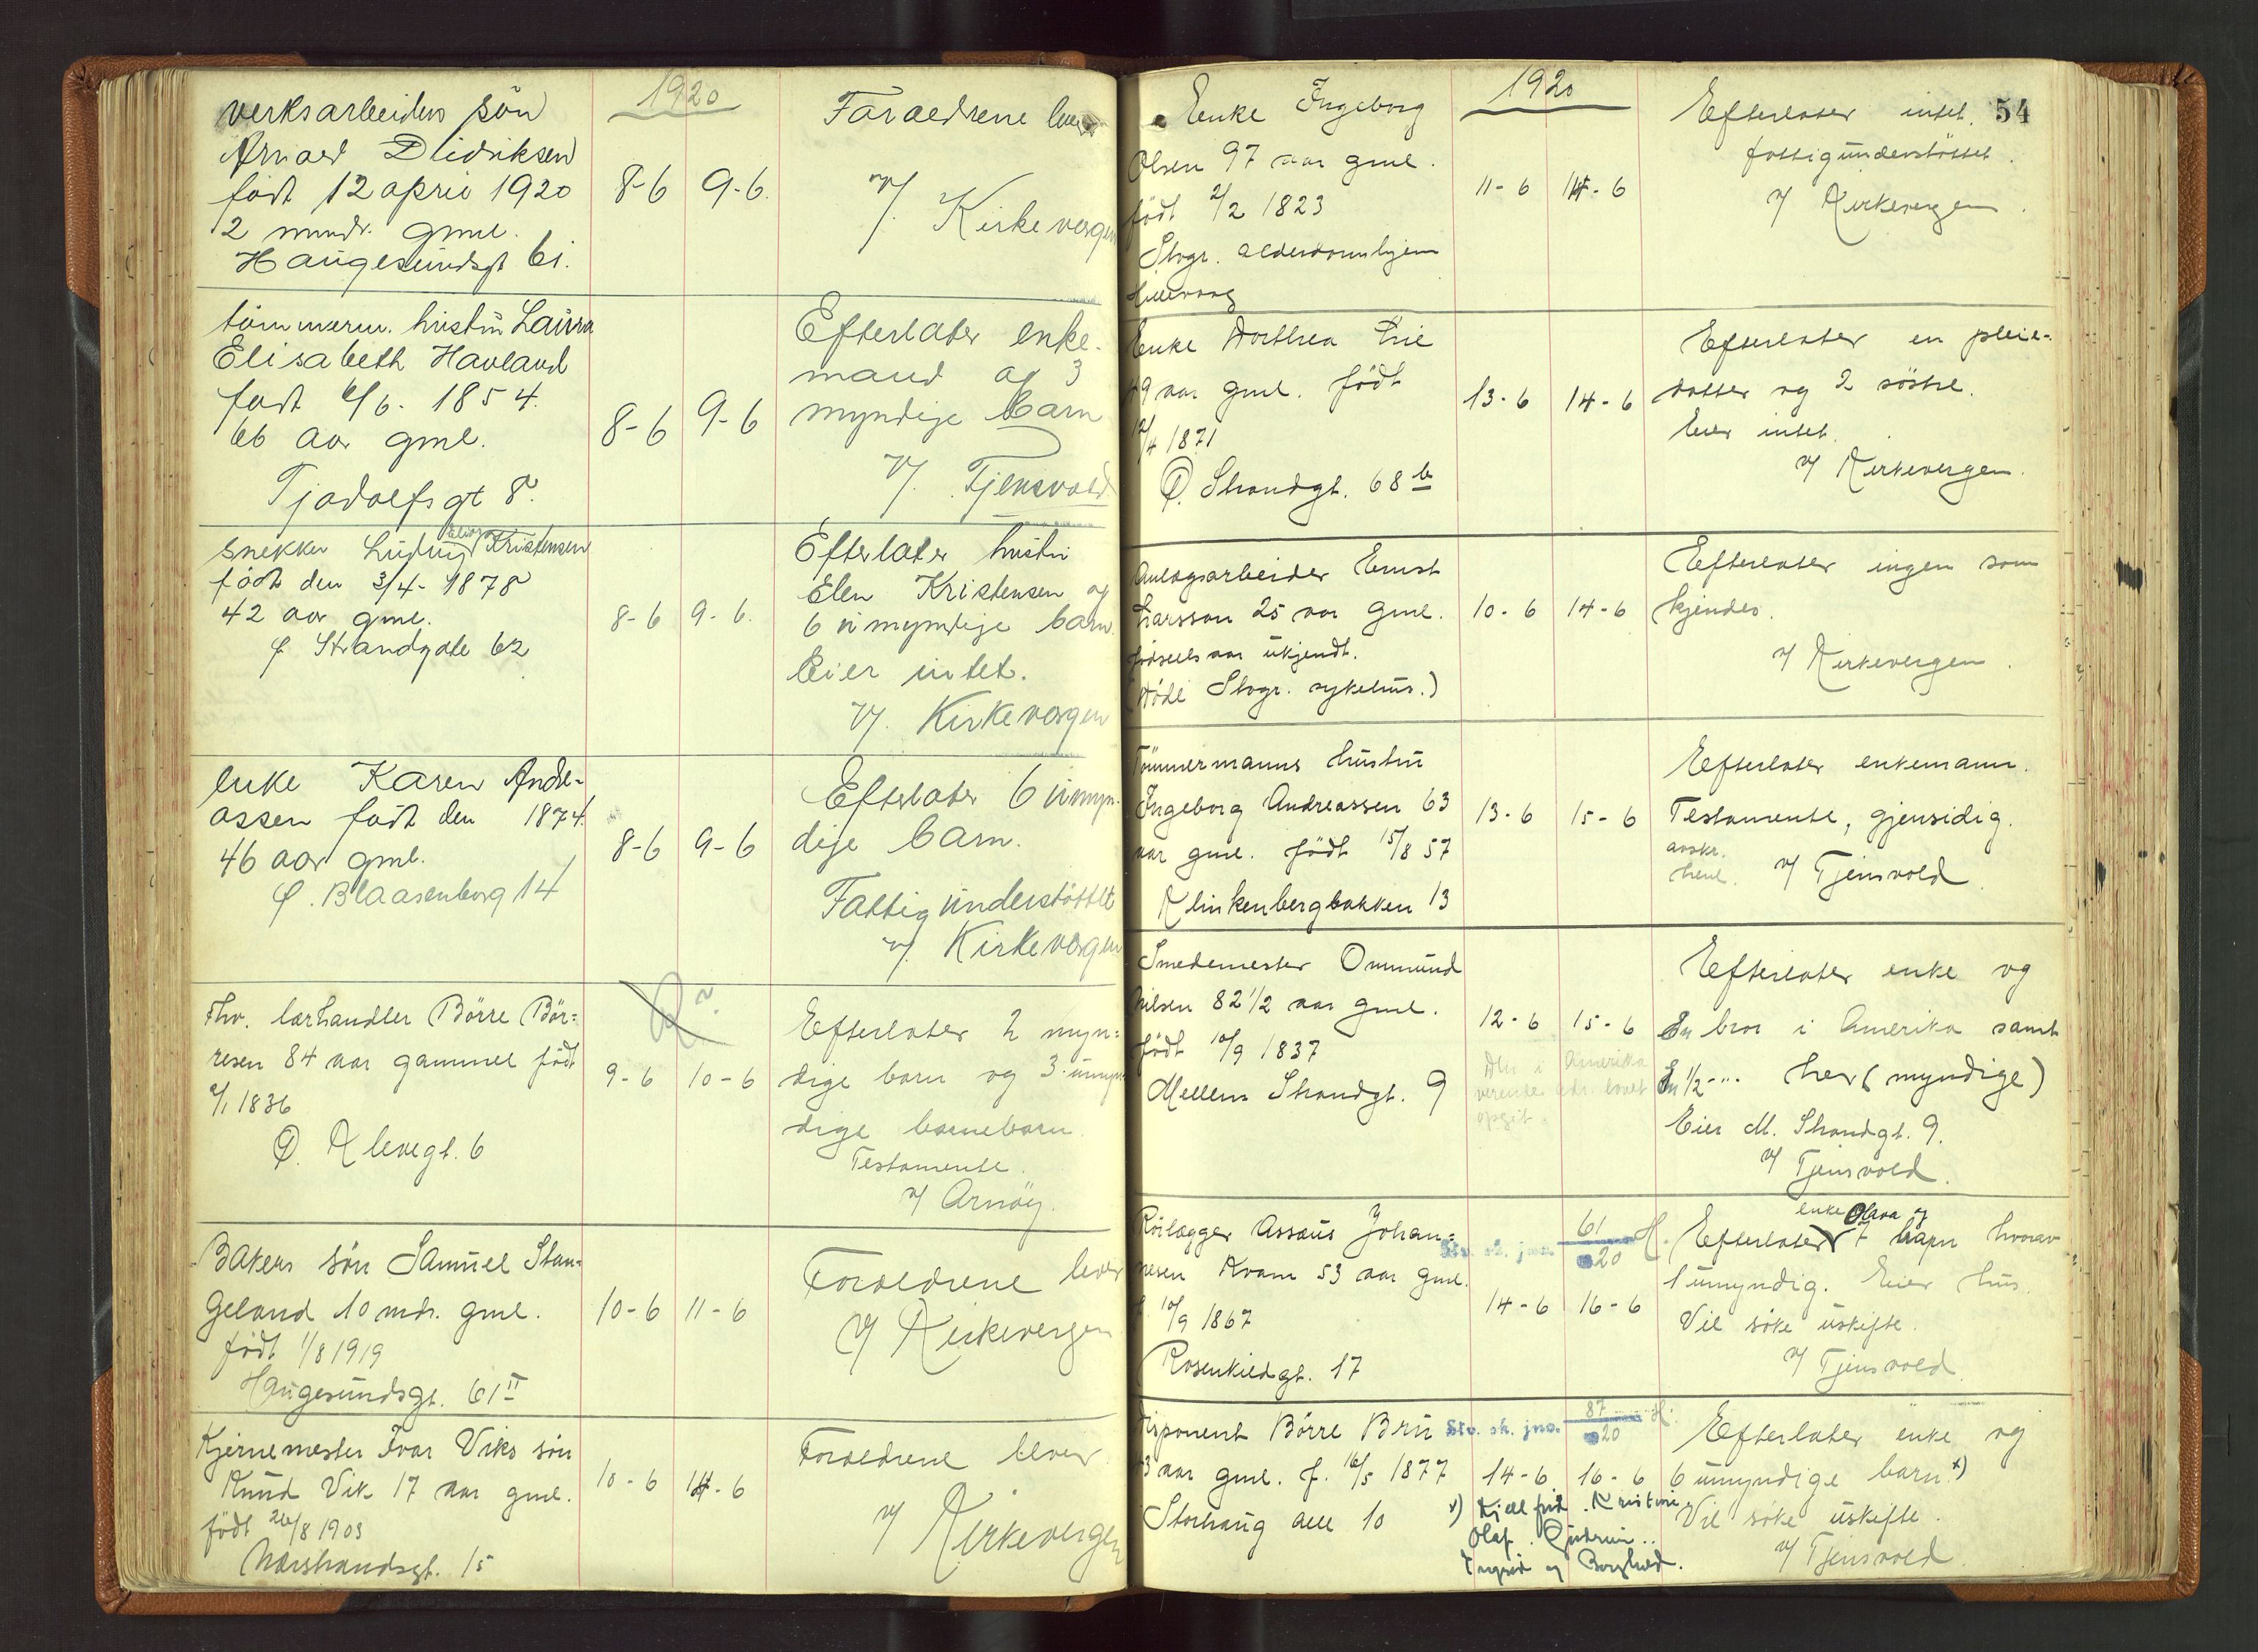 1920
verksarbeiders sön
Arnold Didriksen
födt 12 april 1920
2 mndr. gml.
Haugesundsgt 61.
8-6
9-6.
Foraeldrene lever
v/. Kirkevergen
tömmerm. hustru Laura
Elisabeth Havland
født 6/6. 1854.
66 aar gml.
Tjodolfsgt 8.
8-6
9-6
Efterlater enke-
mand og 3
myndige barn
v/. Tjensvold
snekker Ludvig Kristensen
födt den 3/4- 1878
42 aar gml.
ø Strandgate 62
8-6
9-6.
Efterlater hustru
Elen Kristensen og
6 umyndige barn.
Eier intet.
v/. Kirkevergen
enke Karen Andre-
assen födt den 1874.
46 aar gml.
Ø. Blaasenborg 14
8-6
9-6
Efterlater 6 umyn-
dige barn.
Fattigunderstöttet
v/. Kirkevergen
Fhv. lærhandler Börre Bör=
resen 84 aar gammel födt
1836
Ø. Klevegt. 6
9-6
10-6
Efterlater 2 myn=
dige barn og 3 umyn
dige barnebarn
Testamente.
v/ Arnöy.
Bakers sön Samuel Stan-
geland 10 mdr. gml.
födt 1/8 1919
Haugesundsgt. 61 II
10-6
11-6
Foraeldrene lever
v/ Kirkevergen
Kjernemester Ivar Viks sön
Knud Vik 17 aar gml.
födt 26/8 1903
Nærstrandsgt. 15
10-6
14-6
Foraeldrene lever
v/ Kirkevergen
1920
54
Enke Ingeborg
Olsen 97 aar gml.
födt 2/2 1823
Stvgr. alderdomshjem
Hillevaag
11-6
14-6
Efterlater intet.
fattigunderstöttet.
v/ Kirkevergen.
Enke Dorthea Lie
49 aar gml. födt
12/4 1871
Ø. Strandgt. 68 b
13-6
14-6
Efterlater en pleie-
datter og 2 söstre.
Eier intet.
v/ Kirkevergen.
Anlægsarbeider Ernst
Larsson 25 aar gml.
födselsaar ukjendt.
(Död Stvgr. sykehus.)
10-6
14-6
Efterlater ingen som
kjendes.
v/ Kirkevergen.
Tömmermanns hustru
Ingeborg Andreassen 63
aar gml. födt 15/8 57
Klinkenbergbakken 13
13-6
15-6
Efterlater enkemann.
Testamente, gjensidig.
avskr.
v/ Tjensvold
Smedemester Ommund
Nilsen 82 1/2 aar gml.
födt 10/9 1837
Mellem Strandgt. 9
12-6
15-6
Den i Amerika
værende adr. lovet
opgit.
Efterlater enke og
En bror i Amerika samt
En 1/2-"- her (myndige)
Eier M. Strandgt. 9.
v/ Tjensvold
Rörlægger Assæus Johan=
nesen Kvam 53 aar gml.
f. 10/9 1867
Rosenkildgt. 17
Stv. sk. jno. 61/20 H.
14-6
16-6
enke Olava og
Efterlater 7 barn hvorav
1 umyndig. Eier hus.
Vil söke uskifte.
v/ Tjensvold
Disponent Börre Bru
43 aar gml. f. 16/5 1877
Storhaug alle 10
Stv. sk. jno. 87/20 H.
14-6
16-6
x) Kjellfrid. Kristine.
Olaf. Gudrun..
Ingrid og Borghild.
Efterlater enke og
6 umyndige barn x)
Vil söke uskifte.
v/ Tjensvold.